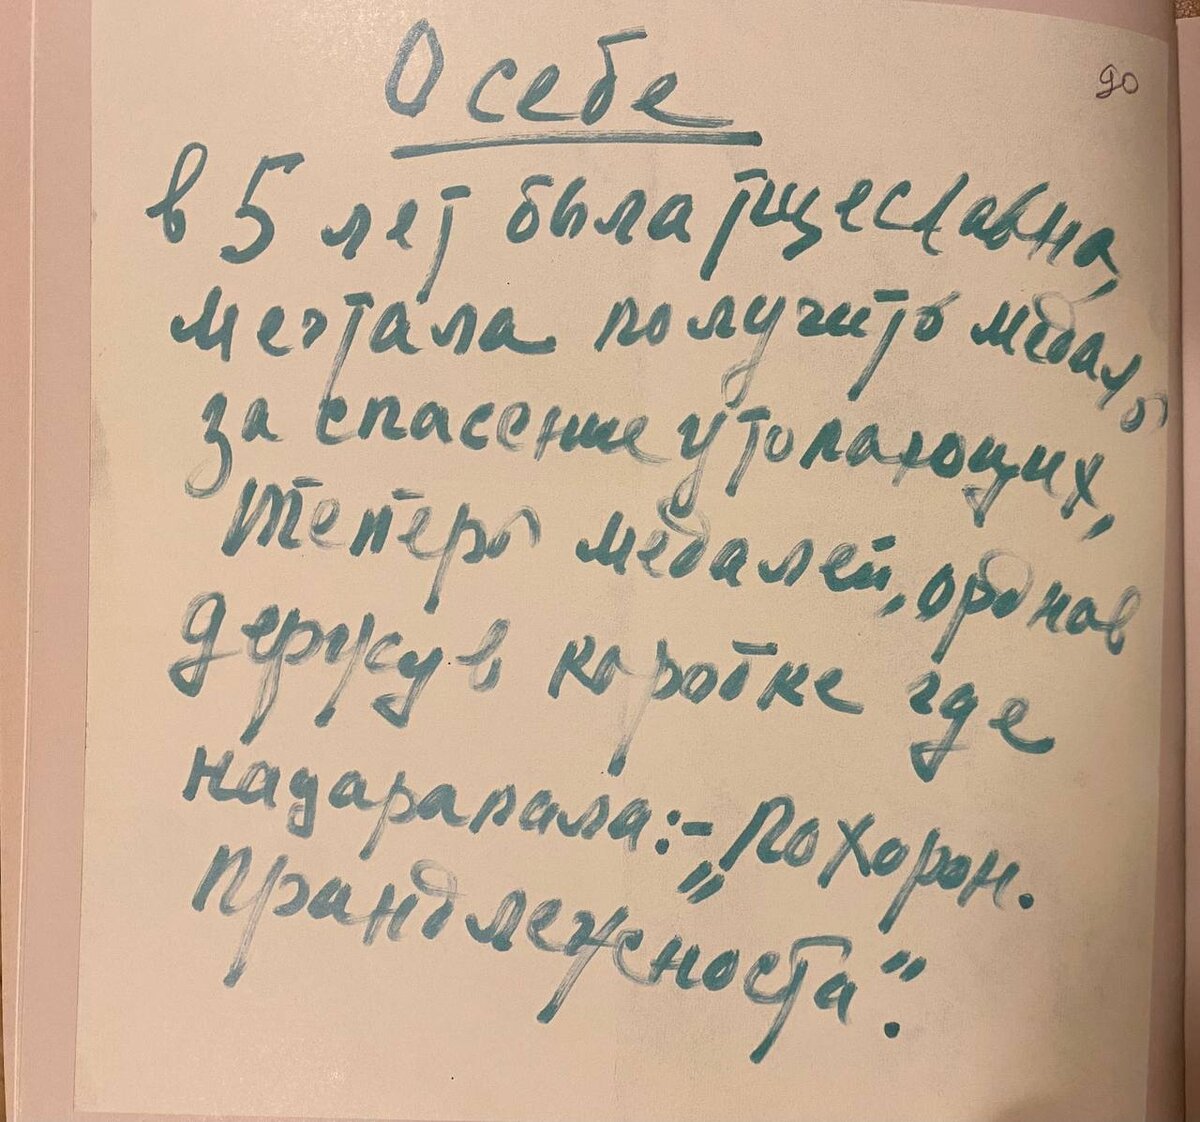 О себе
90
в 5 лет была тщеславна,
мечтала получить медаль
за спасение утопающих,
теперь медалей, орднов
держу в коробке где
нацарапала:– „Похорон.
принадлежноста".